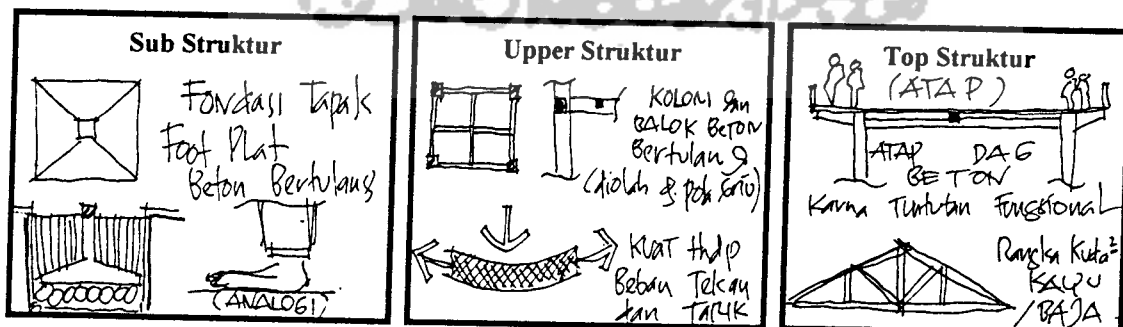 Sub Struktur
Fondasi Tapak
Foot Plat
Beton Bertulang
(ANALOGI)
Upper Struktur
KOLOM dan
BALOK BETON
Bertulang
(diolah
KUAT Thdp
Beban Tekan
dan TARIK
Top Struktur
(ATAP)
ATAP DAG
BETON
Karna Tuntutan Fungsional
Rangka Kuda²
KAYU
/BAJA